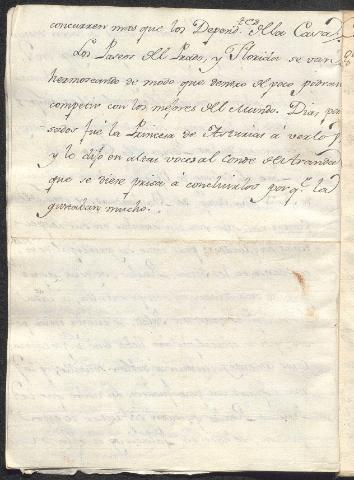 concurren mas que los Depend.tes de la Casa.
Los Paseos del Prado, y Florida se van
hermoseando de modo que dentro de poco podran
competir con los mejores del Mundo. Dias pa-
sados fué la Princesa de Asturias á verlos,
y le dijo en altas voces al Conde de Aranda
que se diese prisa á concluirlos porq.e la
gustaban mucho.